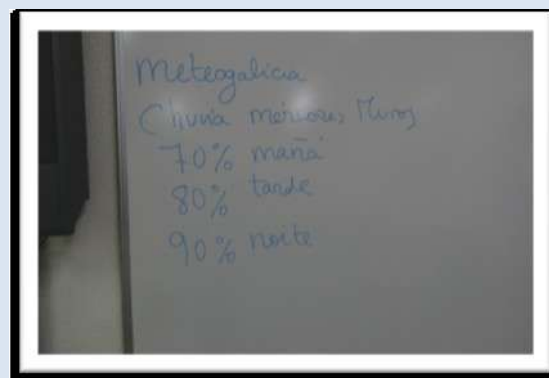 Meteogalicia
Chuvia mércores Muros
70% mañá
80% tarde
90% noite